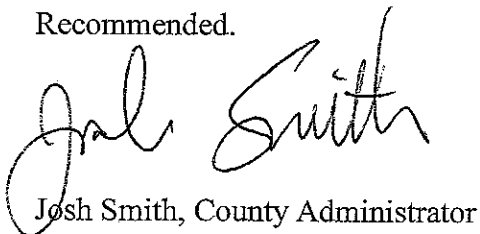 Recommended.
Josh Smith
Josh Smith, County Administrator